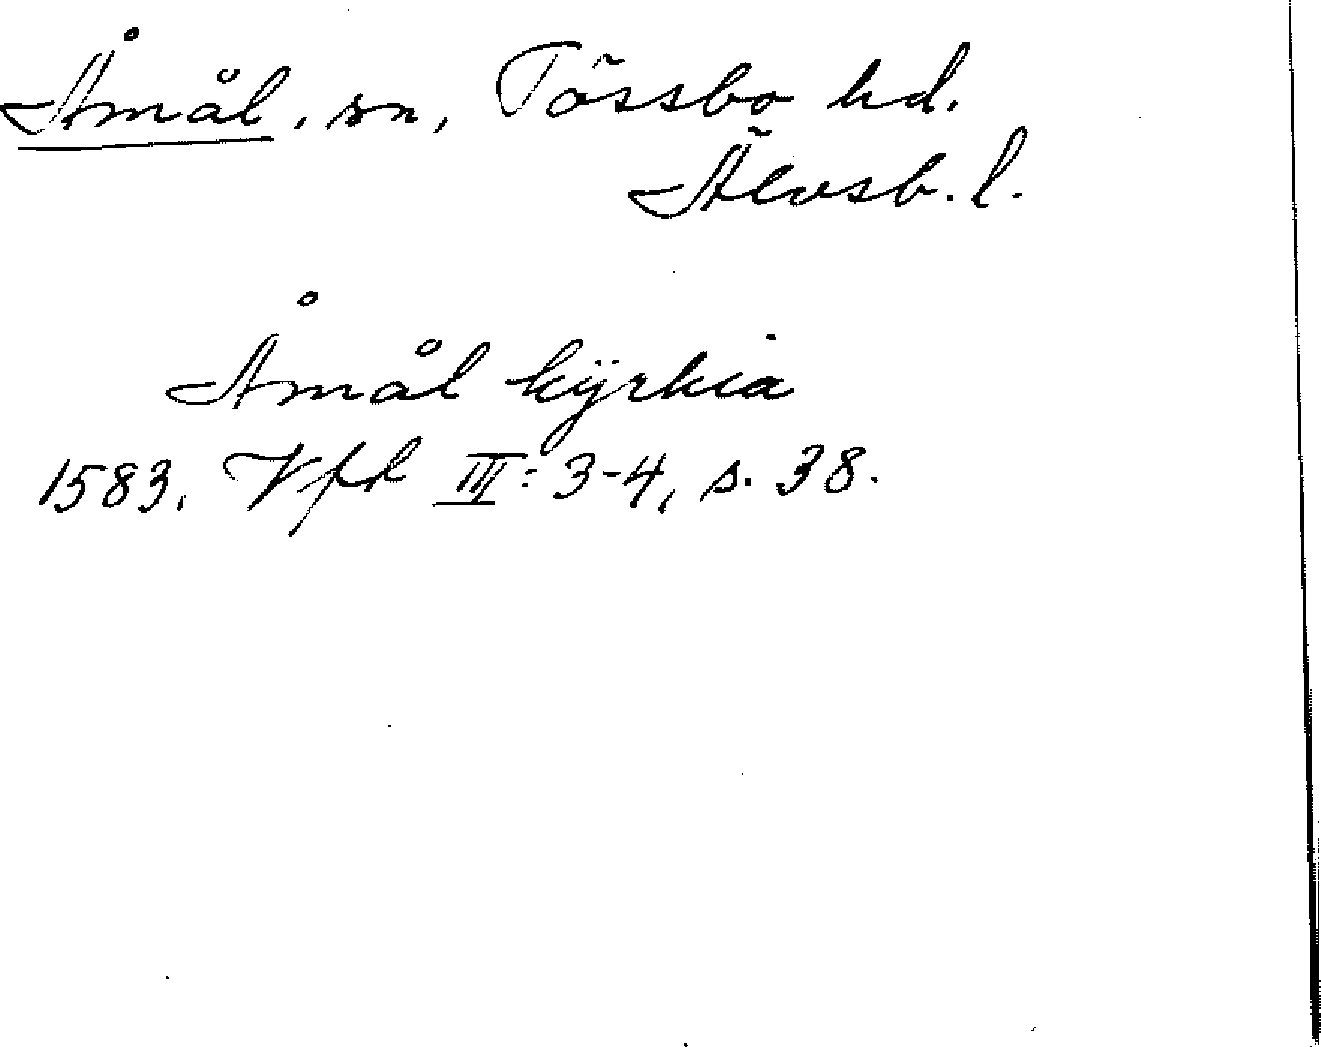 Åmål, sn, Tössbo hd.
Älvsb. l.
Åmål kÿrkia
1583. Vfk III: 3-4, s. 38.